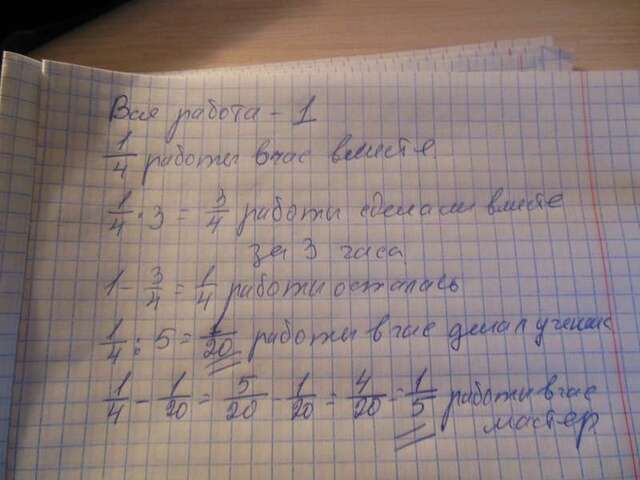 Вся работа - 1
1/4 работы в час вместе
1/4 · 3 = 3/4 работы сделали вместе
за 3 часа
1 - 3/4 = 1/4 работы осталась
1/4 : 5 = 1/20 работы в час делал ученик
1/4 - 1/20 = 5/20 - 1/20 = 4/20 = 1/5 работы в час
мастер